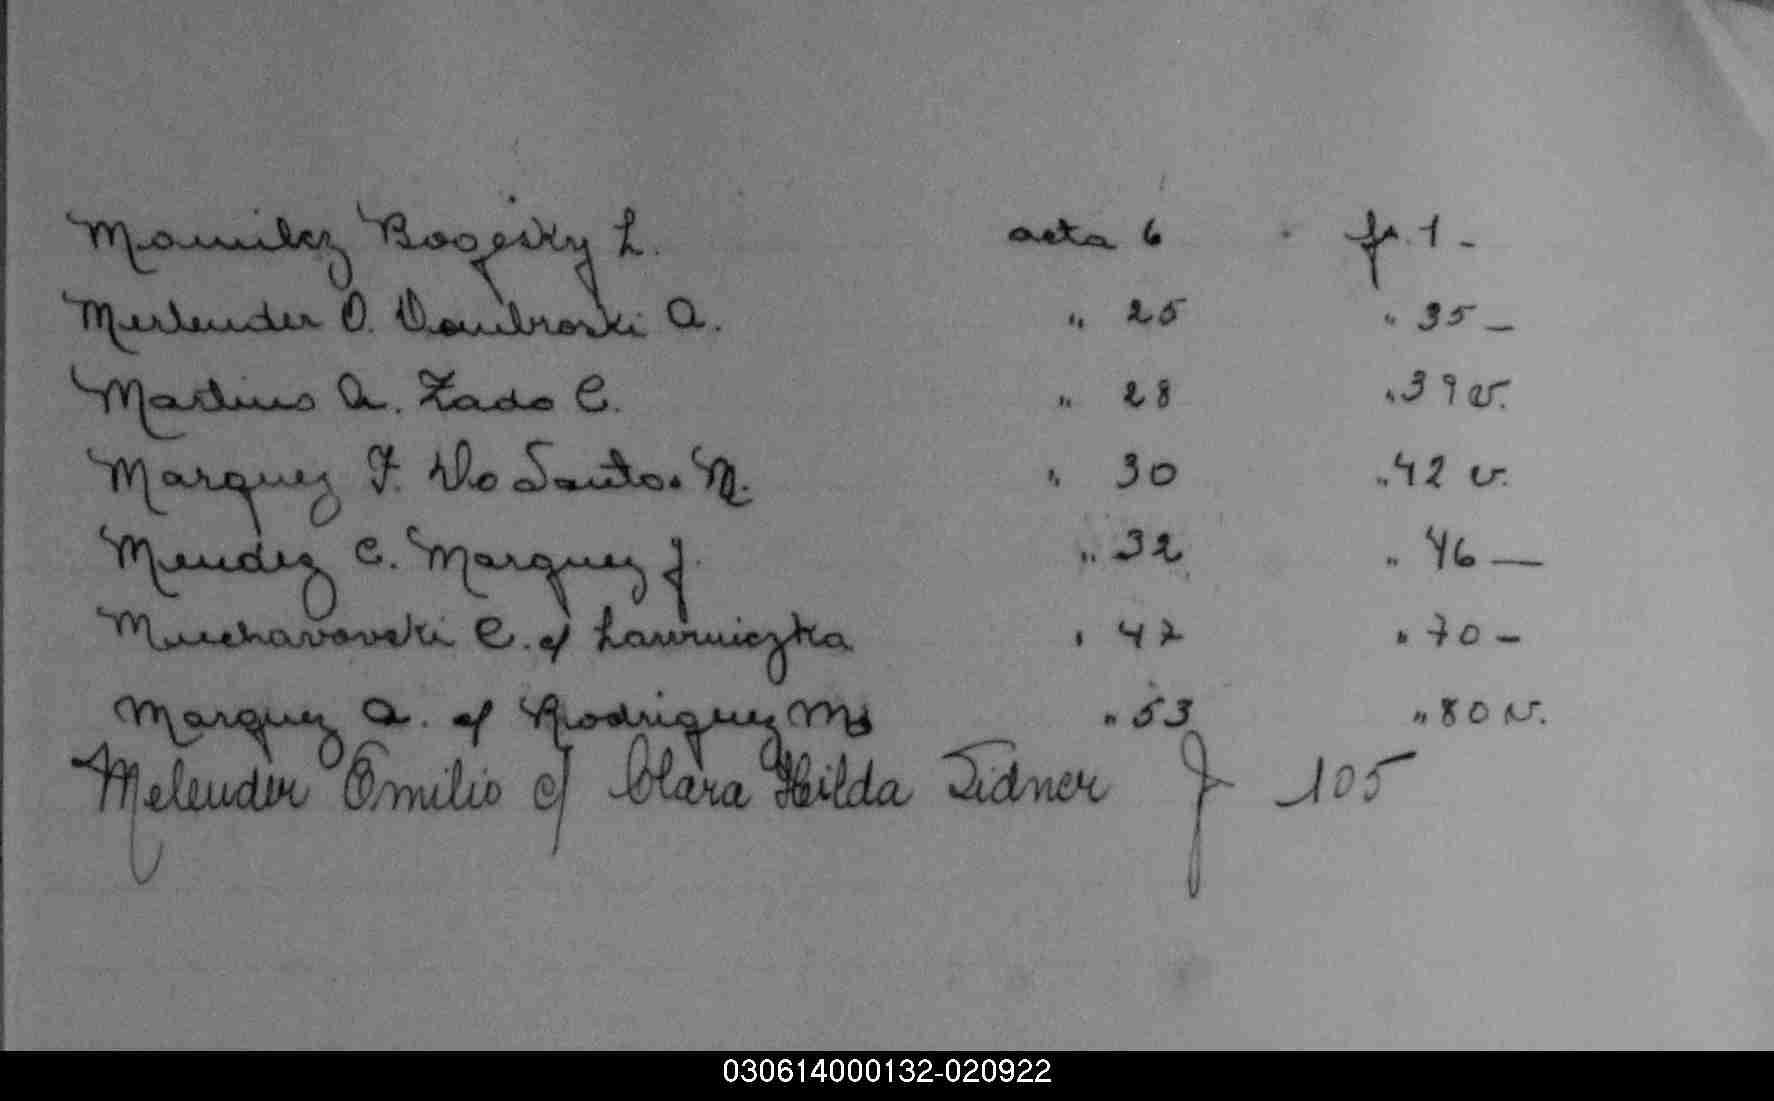 Bogesky L. acta 6 fs. 1 -
Merlender O. Dombroski A. " 25 " 35 -
Martins A. Zado C. " 28 " 39 v.
Marquez F. Do Santos M. " 30 " 42 v.
Mendez C. Marquez J. " 32 " 46 —
C. c/ " 42 " 70 -
Marquez A. c/ Rodriguez " 53 " 80 v.
Melender Emilio c/ Clara Hilda Sidner F 105
030614000132-020922